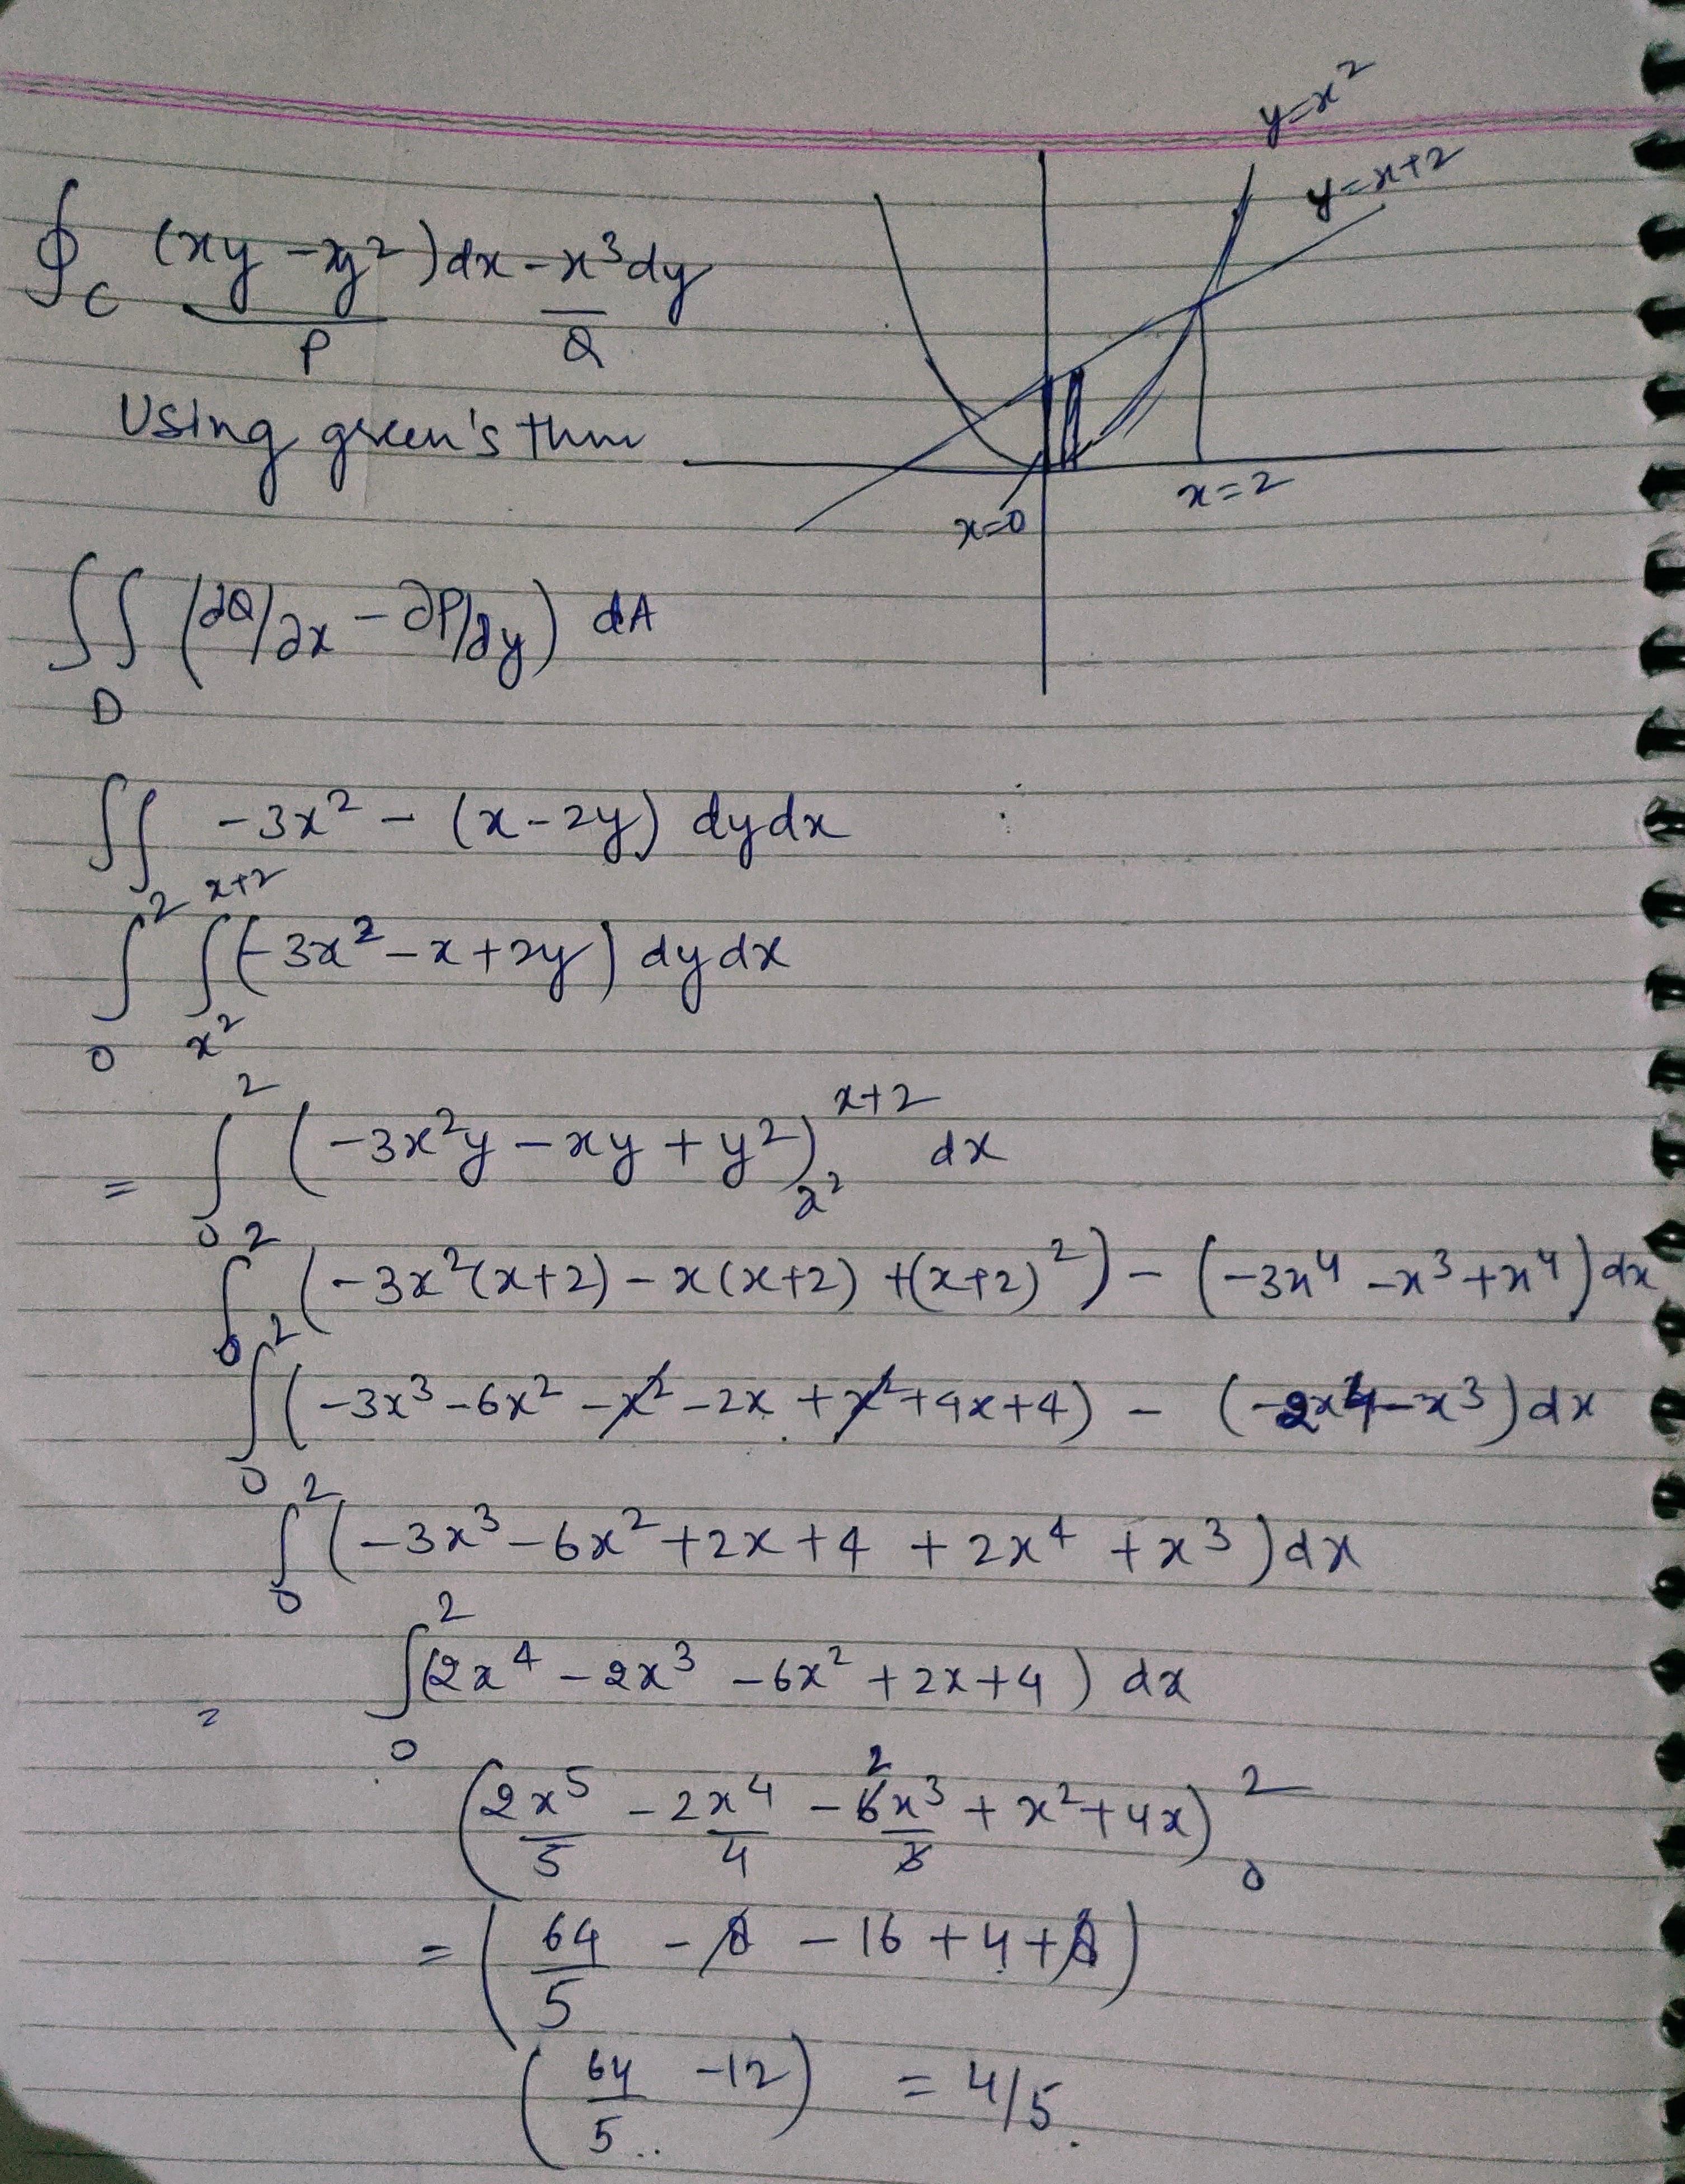 y=x²
y=x+2
∮_C (xy - y²)dx - x³dy
P Q
Using green's thm
x=0 x=2
∬_D (∂Q/∂x - ∂P/∂y) dA
∬ -3x² - (x-2y) dydx
∫_0^2 ∫_{x²}^{x+2} (-3x² - x + 2y) dydx
= ∫_0^2 (-3x²y - xy + y²)_{x²}^{x+2} dx
∫_0^2 (-3x²(x+2) - x(x+2) + (x+2)²) - (-3x⁴ - x³ + x⁴) dx
∫_0^2 (-3x³ - 6x² - x² - 2x + x² + 4x + 4) - (-2x⁴ - x³) dx
∫_0^2 (-3x³ - 6x² + 2x + 4 + 2x⁴ + x³) dx
= ∫_0^2 (2x⁴ - 2x³ - 6x² + 2x + 4) dx
(2x⁵/5 - 2x⁴/4 - 6x³/3 + x² + 4x)_0^2
= (64/5 - 8 - 16 + 4 + 8)
(64/5 - 12) = 4/5.